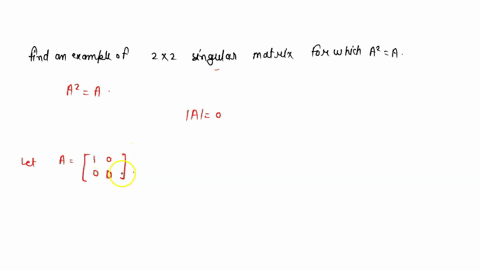 find an example of 2x2 singular matrix for which A² = A.
A² = A.
|A| = 0
Let A = [ 1 0
0 0 ].